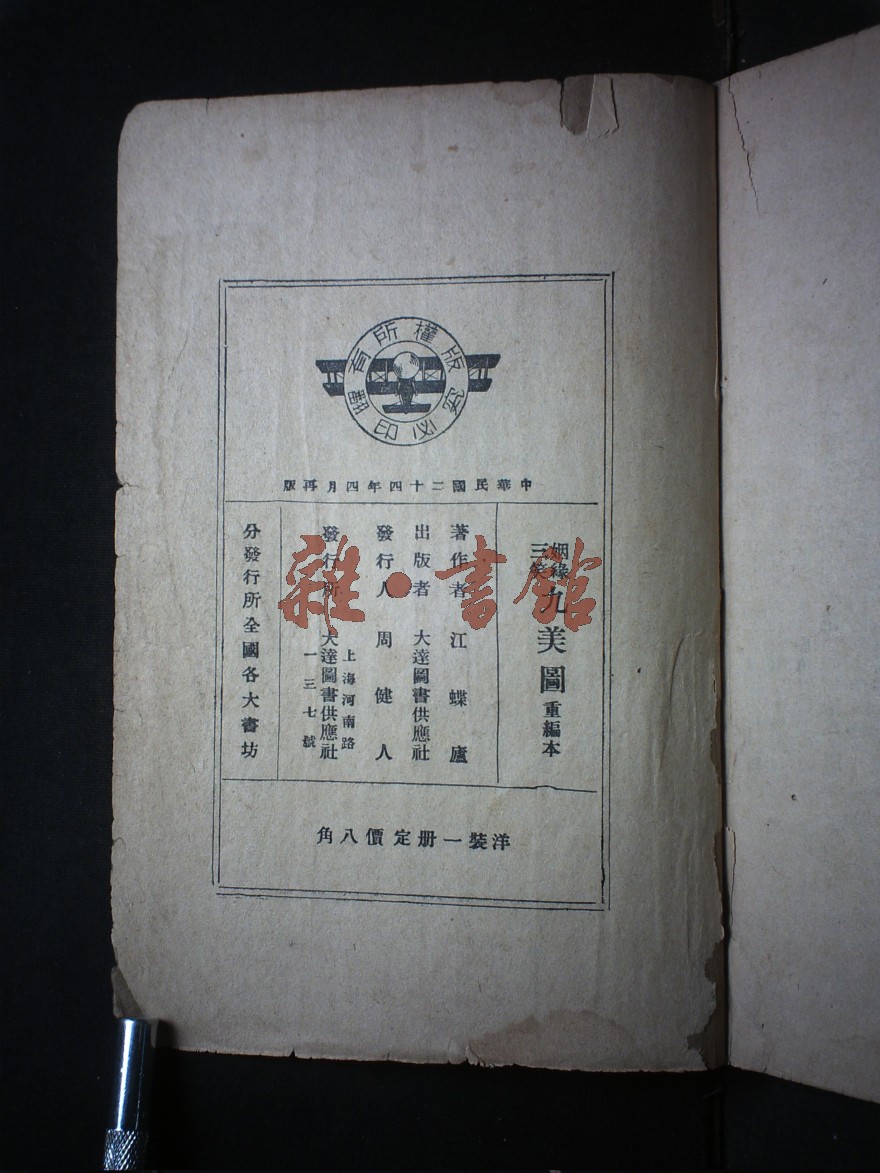 版權所有
翻印必究
中華民國二十四年四月再版
三笑姻緣九美圖重編本
著作者 江蝶廬
出版者 大達圖書供應社
發行人 周健人
上海河南路
發行所 大達圖書供應社
一三七號
分發行所全國各大書坊
洋裝一册定價八角
雜·書館